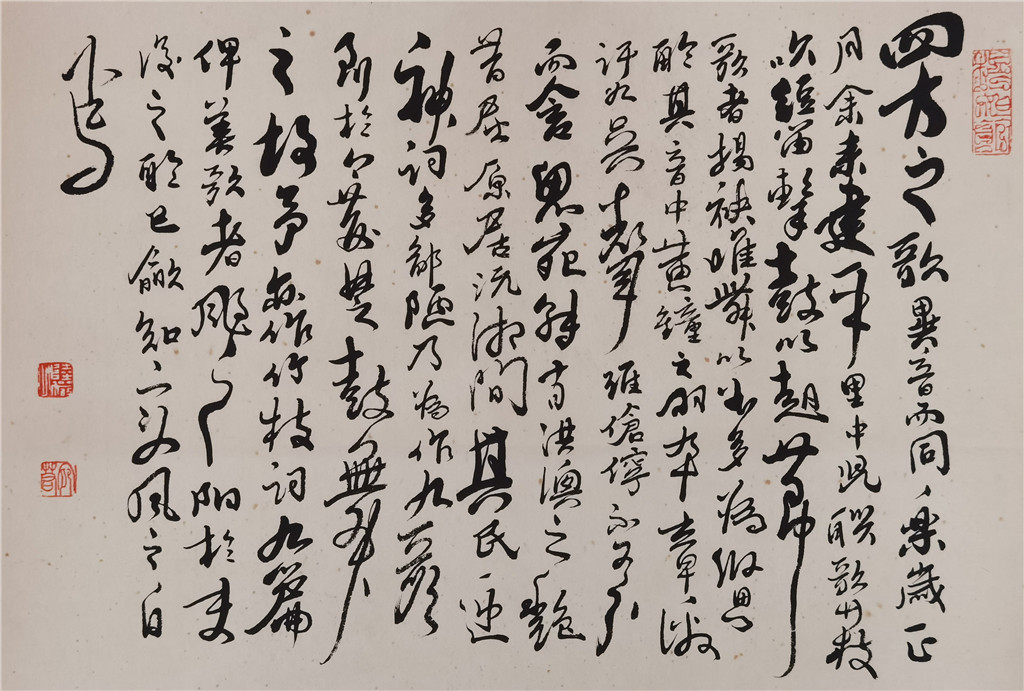 四方之歌異音而同樂歲正
月余來建平里中児聯歌竹枝
吹短笛擊鼓以赴節
歌者揚袂睢舞以曲多為賢
聆其音中黃鐘之羽卒章激
訐如吳聲雖傖儜不可分
而含思宛轉有淇澳之艷
昔屈原居沅湘間其民迎
神詞多鄙陋乃為作九歌
到於今荊楚鼓舞
之故予亦作竹枝詞九篇
俾善歌者颺之附於末
後之聆巴歈知變風之自
焉